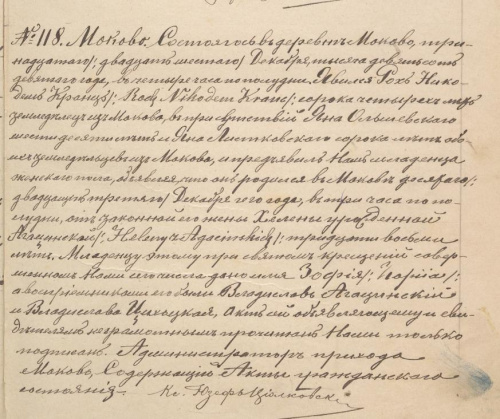 № 118. Моково. Состоялось въ деревнѣ Моково, три-
надцатаго/ двадцать шестаго/ Декабря, тысяча девятьсотъ
девятаго года, въ четыре часа по полудни. Явился Рохъ Нико-
демъ Кранцъ /: Roch Nikodem Kranc /: сорока четырехъ лѣтъ
земледѣлецъ изъ Моково, въ присутствіи Яна Ольшевского
шести десяти лѣтъ и Яна Листковского сорока лѣтъ обо-
ихъ земледѣльцевъ изъ Моково, и предъявилъ Намъ младенца
женского пола, объявляя, что онъ родился въ Моковѣ десятаго/
двадцать третьяго/ Декабря сего года, въ три часа по по-
лудни, отъ законной его жены Хелены урожденной
Агацинской /: Heleny z Agacińskich /: тридцати восьми
лѣтъ. Младенцу этому при святомъ крещеніи совер-
шенномъ Нами сего числа дано имя Зофія /: Zofija /:
а воспріемниками его были Владиславъ Агацинскій
и Владислава Цихоцкая. Актъ сей объявляющему и сви-
дѣтелямъ неграмотнымъ прочитанъ Нами только
подписанъ. Администраторъ прихода
Моково, Содержащій Акты гражданского
состоянія Кс. Юзефъ